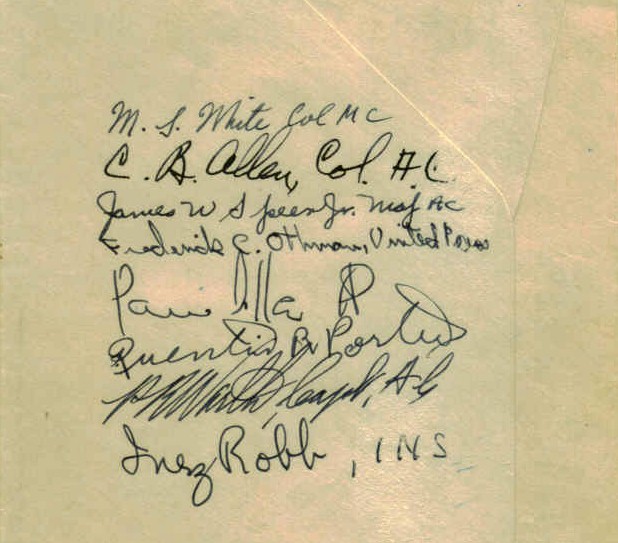 M. S. White Col MC
C. B. Allen, Col. A C.
James W Speer Jr. Maj AC
Frederick C. Othman, United Press
Quentin R Porter
Capt, A C
Inez Robb, INS